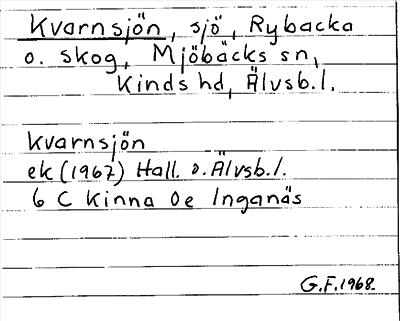 Kvarnsjön, sjö, Rybacka
o. skog, Mjöbäcks sn,
Kinds hd, Älvsb.l.
Kvarnsjön
ek (1967) Hall. o. Älvsb.l.
6 C Kinna 0e Inganäs
G.F. 1968.